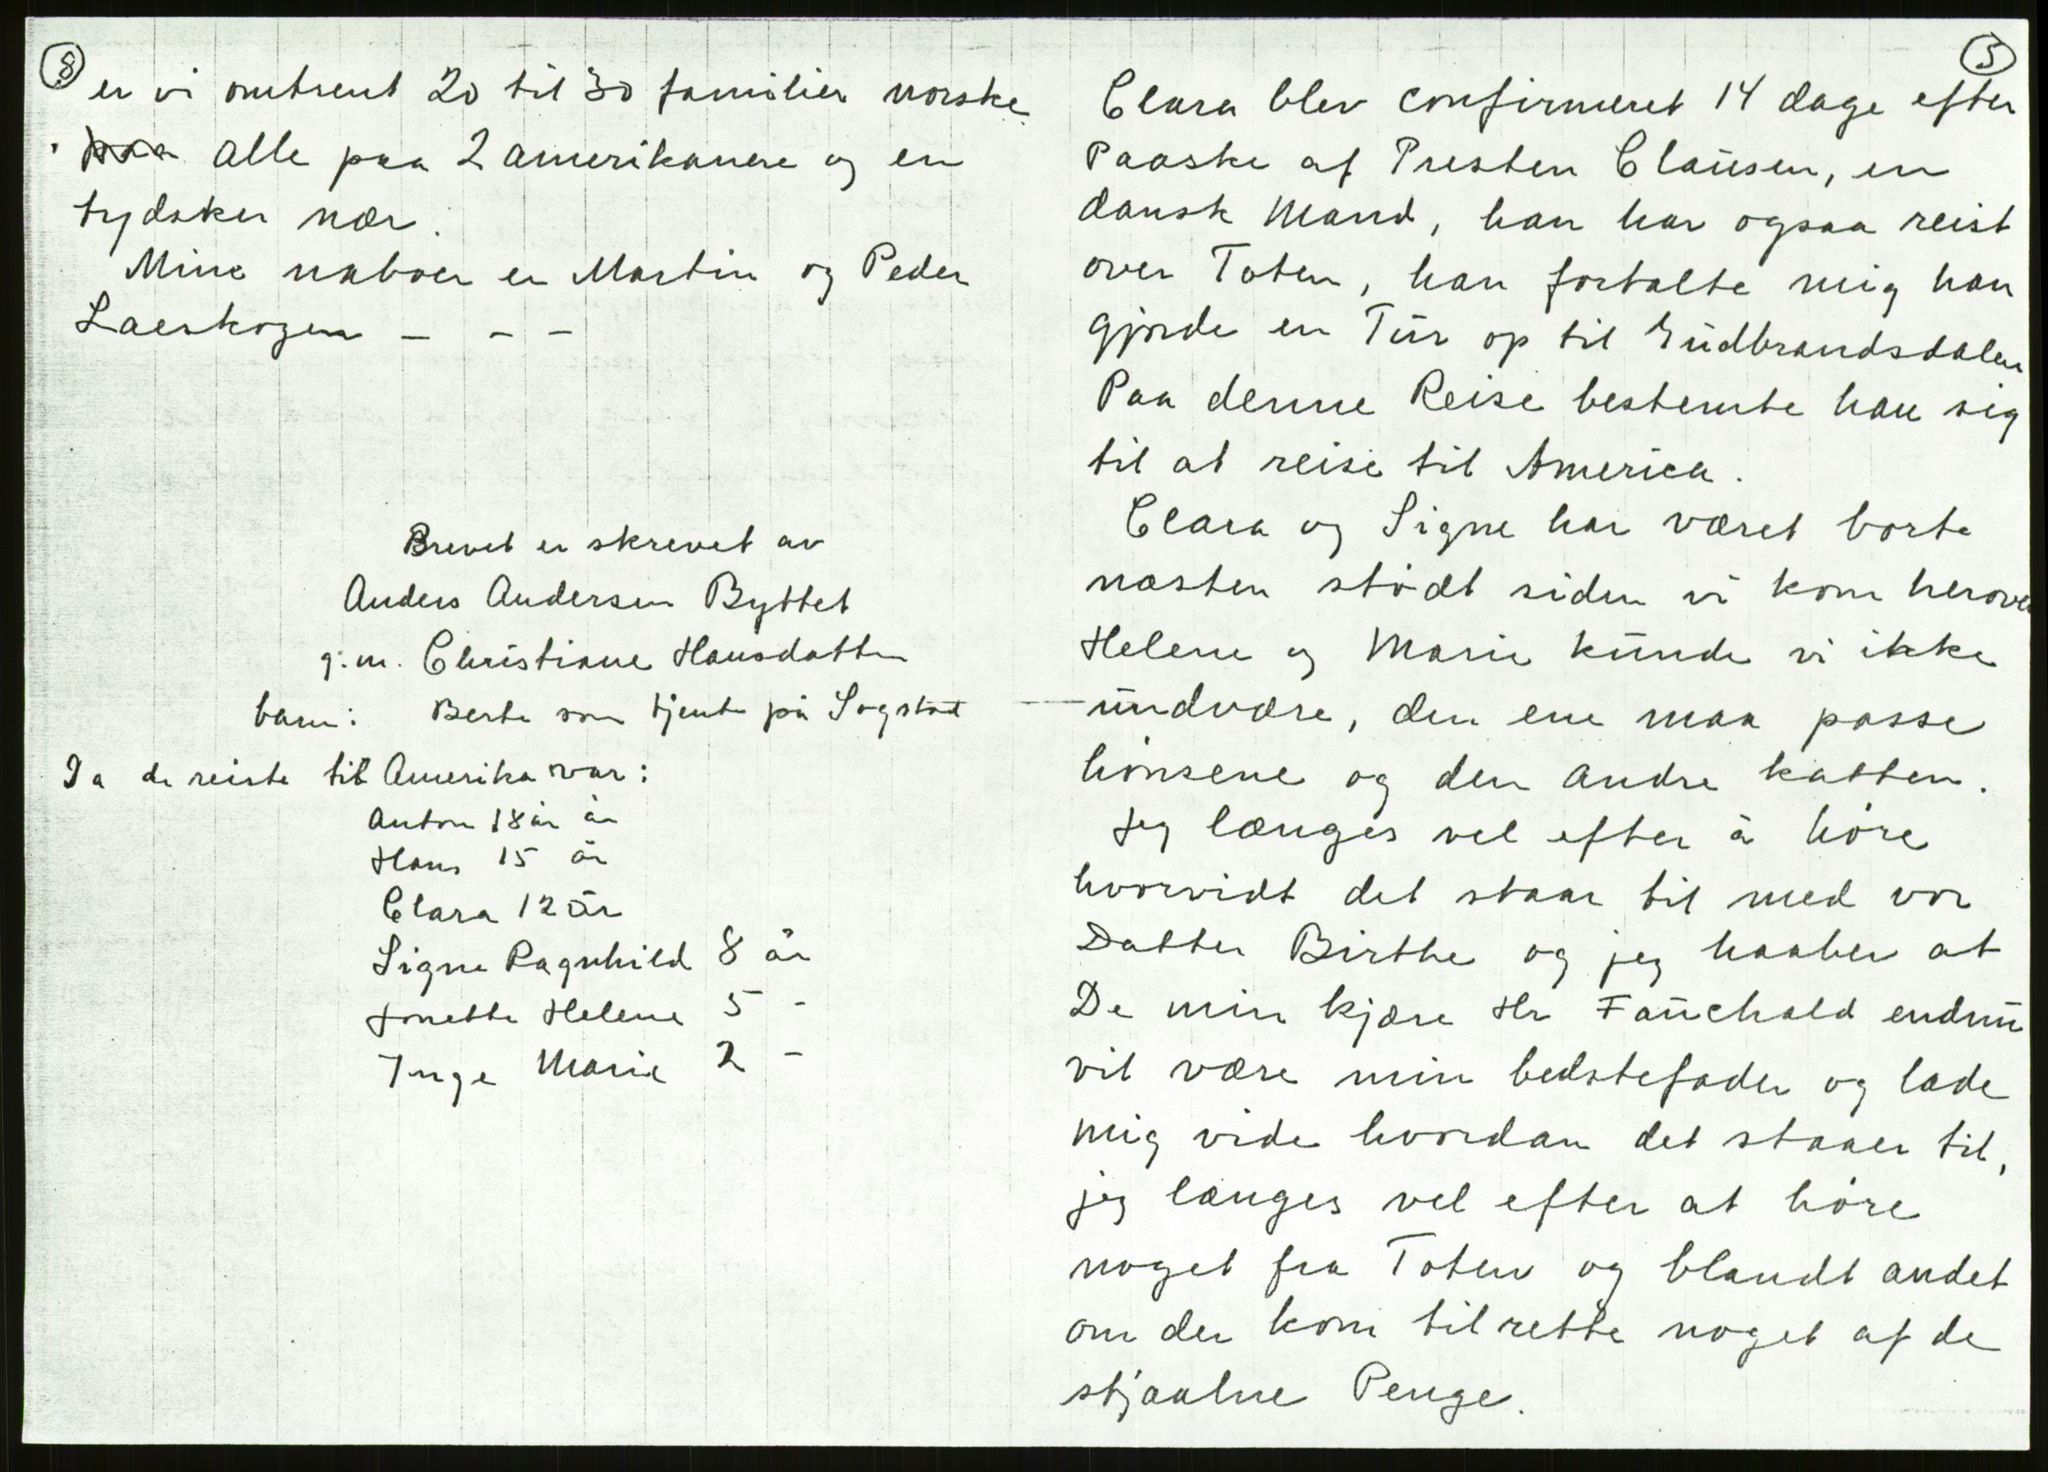 8
er vi omtrent 20 til 30 familier norske.
alle paa 2 amerikanere og en
tydsker nær.
Mine naboer er Martin og Peder
Laeskogen - - -
Brevet er skrevet av
Anders Andersen Byttet
g.m. Christiane Hansdatter
barn: Berte som tjente på Sogstad
Da de reiste til Amerika var:
Anton 18 år år
Hans 15 år
Clara 12 år
Signe Ragnhild 8 år
Jonette Helene 5 -
Inge Marie 2 -
5
Clara blev confirmeret 14 dage efter
Paaske af Presten Claŭsen, en
dansk Mand, han har ogsaa reist
over Toten, han fortalte mig han
gjorde en Tŭr op til Gŭdbrandsdalen
Paa denne Reise bestemte han sig
til at reise til America.
Clara og Signe har været borte
næsten stødt siden vi kom herover
Helene og Marie kŭnde vi ikke
ŭndvære, den ene maa passe
hønsene og den andre katten.
Jeg længes vel efter å høre
hvorvidt det staar til med vor
Datter Birthe og jeg haaber at
De min kjære Hr Faŭchald endnŭ
vil være min bedstefader og lade
mig vide hvordan det staaer til,
jeg længes vel efter at høre
noget fra Toten og blandt andet
om der kom tilrette noget af de
stjaalne Penge.